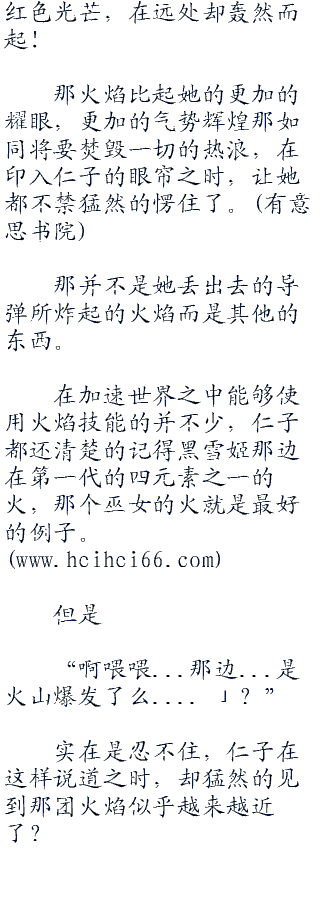 红色光芒，在远处却轰然而
起！
那火焰比起她的更加的
耀眼，更加的气势辉煌那如
同将要焚毁一切的热浪，在
印入仁子的眼帘之时，让她
都不禁猛然的愣住了。(有意
思书院)
那并不是她丢出去的导
弹所炸起的火焰而是其他的
东西。
在加速世界之中能够使
用火焰技能的并不少，仁子
都还清楚的记得黑雪姬那边
在第一代的四元素之一的
火，那个巫女的火就是最好
的例子。
(www.hcihci66.com)
但是
“啊喂喂...那边...是
火山爆发了么.... 」？”
实在是忍不住，仁子在
这样说道之时，却猛然的见
到那团火焰似乎越来越近
了？